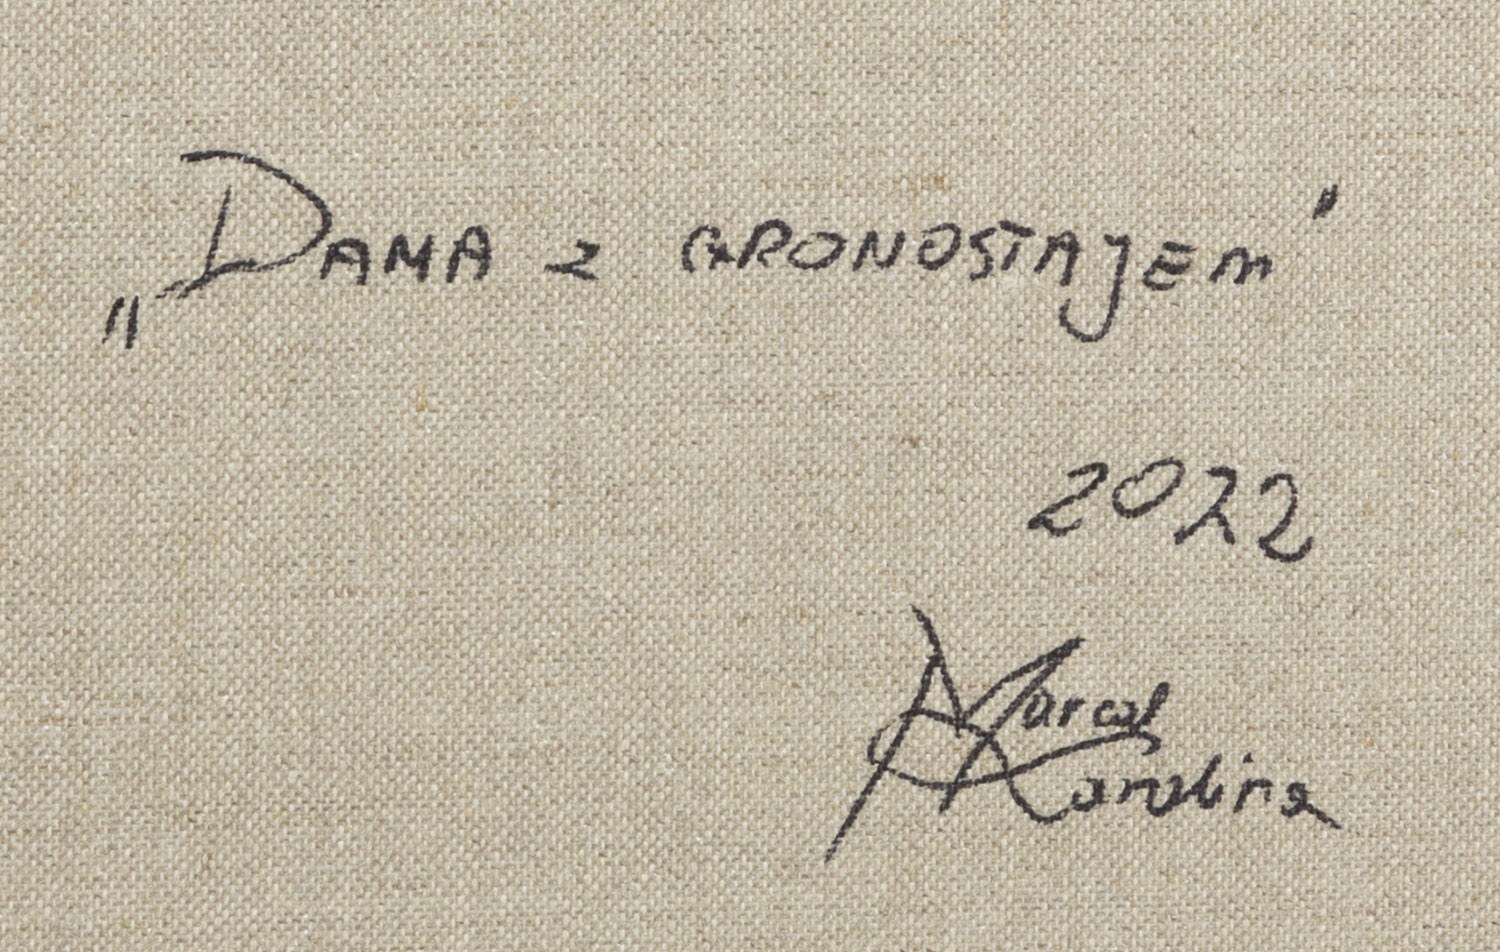 „Dama z gronostajem"
2022
Marcel
Karolina